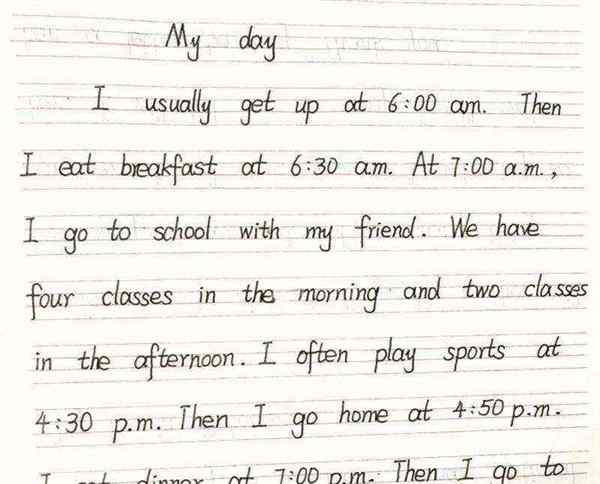 My day
I usually get up at 6:00 am. Then
I eat breakfast at 6:30 a.m. At 7:00 a.m.,
I go to school with my friend. We have
four classes in the morning and two classes
in the afternoon. I often play sports at
4:30 p.m. Then I go home at 4:50 p.m.
I eat dinner at 7:00 p.m. Then I go to